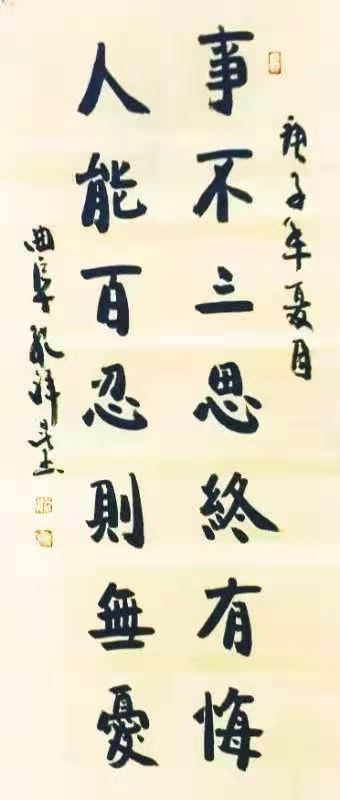 庚子年夏月
事不三思終有悔
人能百忍則無憂
曲阜孔祥书